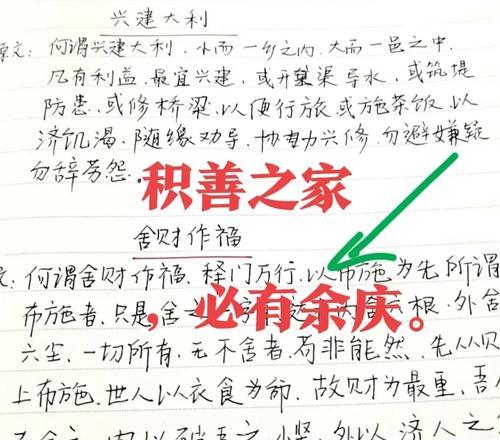 兴建大利
原文：何谓兴建大利．小而一乡之内．大而一邑之中．
凡有利益．最宜兴建．或开渠导水．或筑堤
防患．或修桥梁．以便行旅．或施茶饭．以
济饥渴．随缘劝导．协力兴修．勿避嫌疑
勿辞劳怨．
积善之家
舍财作福
文：何谓舍财作福．释门万行．以布施为先．所谓
布施者．只是舍之
六根．外舍
，必有余庆。
六尘．一切所有．无不舍者．苟非能然．先从财
上布施．世人以衣食为命．故财为最重．吾
内以破吾之小悭．外以济人之